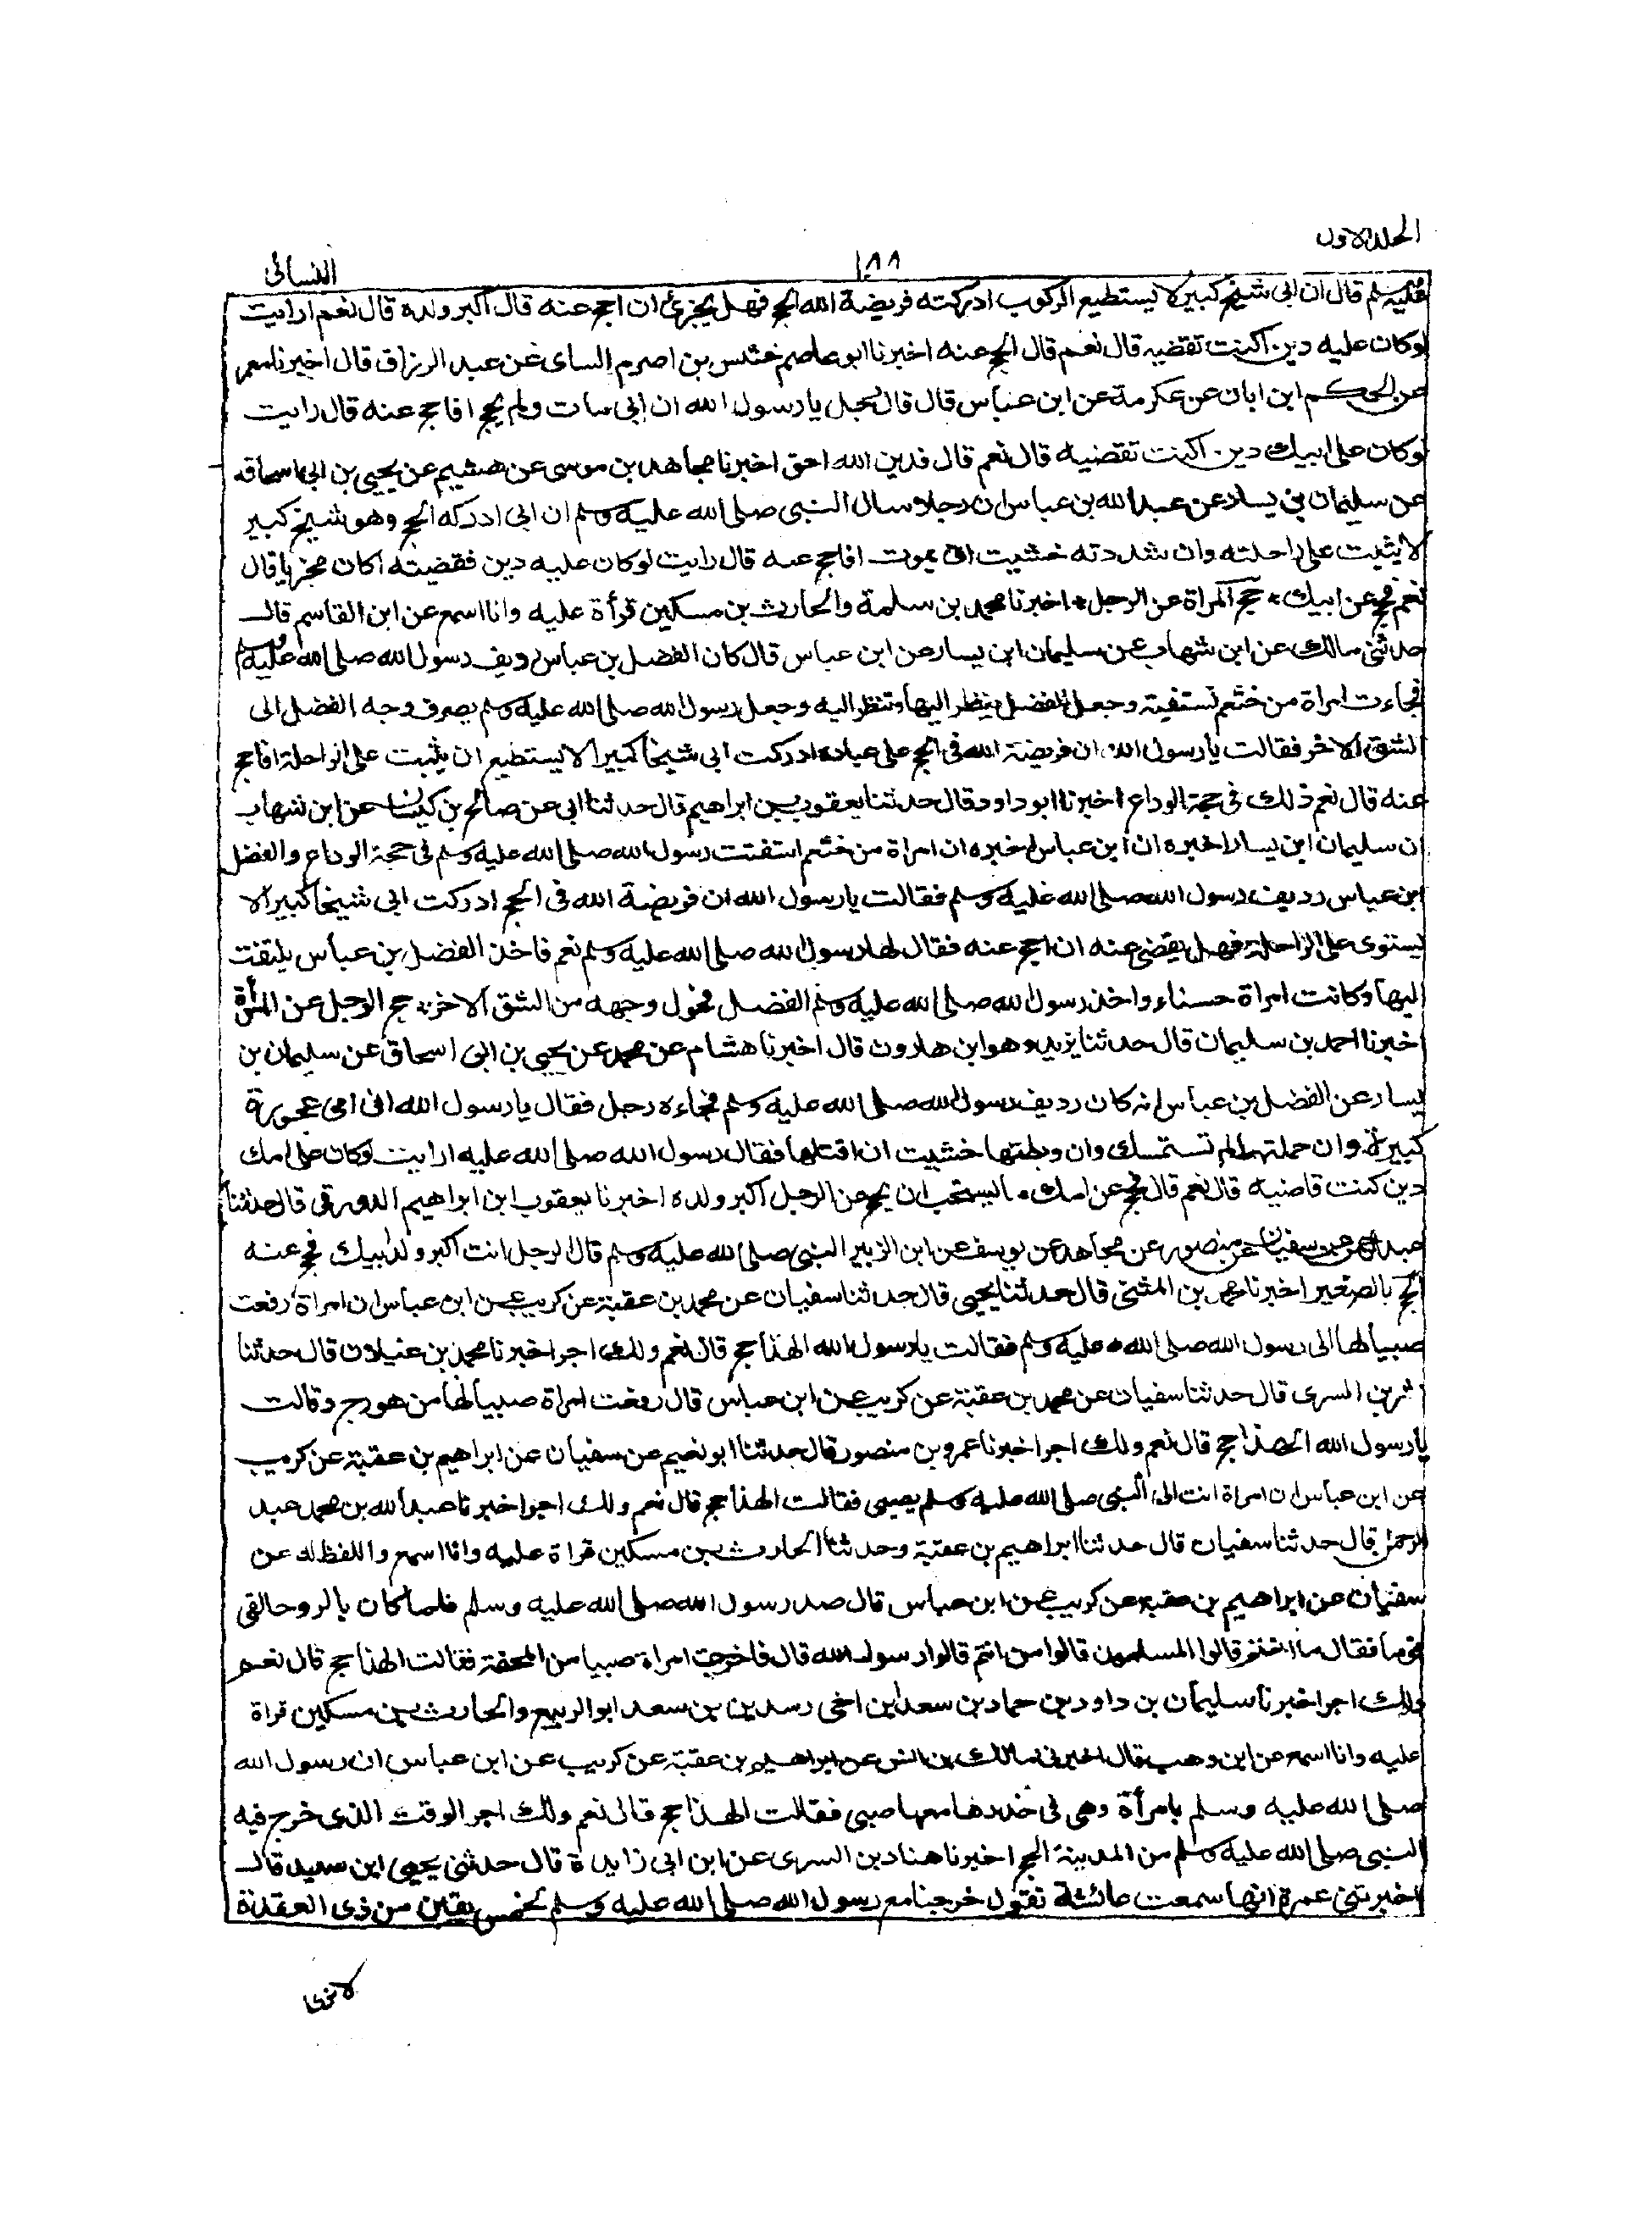 الجلد الاول
١٨٨
النسائى
عليه وسلم قال ان ابى شيخ كبير لا يستطيع الركوب ادركته فريضة الله الحج فهل يجزئ ان احج عنه قال اكبر ولده قال نعم ارايت
لو كان عليه دين اكنت تقضيه قال نعم قال الحج عنه اخبرنا ابو عاصم خشس بن اصرم الساى عن عبد الرزاق قال اخبرنا معمر
عن الحكم ابن ابان عن عكرمة عن ابن عباس قال قال رجل يا رسول الله ان ابى مات ولم يحج افاحج عنه قال رايت
لو كان على ابيك دين اكنت تقضيه قال نعم قال فدين الله احق اخبرنا مجاهد بن موسى عن هشيم عن يحيى بن ابى اسحاقه
عن سليمان بن يسار عن عبد الله بن عباس ان رجلا سال النبى صلى الله عليه وسلم ان ابى ادركه الحج وهو شيخ كبير
لا يثبت على راحلته وان شددته خشيت ان يموت افاحج عنه قال رايت لو كان عليه دين فقضيته اكان مجزيا قال
نعم فحج عن ابيك * حج المراة عن الرجل * اخبرنا محمد بن سلمة والحارث بن مسكين قرأة عليه وانا اسمع عن ابن القاسم قال
حدثنى مالك عن ابن شهاب عن سليمان ابن يسار عن ابن عباس قال كان الفضل بن عباس رديف رسول الله صلى الله عليه وسلم
فجاءت امراة من خثعم تستفيته وجعل الفضل ينظر اليها وتنظر اليه وجعل رسول الله صلى الله عليه وسلم يصرف وجه الفضل الى
الشق الاخر فقالت يا رسول الله ان فريضة الله فى الحج على عباده ادركت ابى شيخا كبيرا لا يستطيع ان يثبت على الراحلة افاحج
عنه قال نعم ذلك فى حجة الوداع اخبرنا ابو داود قال حدثنا يعقوب بن ابراهيم قال حدثنا ابى عن صالح بن كيسان عن ابن شهاب
ان سليمان ابن يسار اخبره ان ابن عباس اخبره ان امراة من خثعم استفتت رسول الله صلى الله عليه وسلم فى حجة الوداع والفضل
ابن عباس رديف رسول الله صلى الله عليه وسلم فقالت يا رسول الله ان فريضة الله فى الحج ادركت ابى شيخا كبيرا لا
يستوى على الراحلة فهل يقضى عنه ان احج عنه فقال لها رسول الله صلى الله عليه وسلم نعم فاخذ الفضل بن عباس يلتفت
اليها وكانت امراة حسناء واخذ رسول الله صلى الله عليه وسلم الفضل فحول وجهه من الشق الاخر * حج الرجل عن المرأة
اخبرنا احمد بن سليمان قال حدثنا يزيد وهو ابن هارون قال اخبرنا هشام عن محمد عن يحيى بن ابى اسحاق عن سليمان بن
يسار عن الفضل بن عباس انه كان رديف رسول الله صلى الله عليه وسلم فجاءه رجل فقال يا رسول الله انى امى عجوزة
كبيرة وان حملتها لم تستمسك وان وبطتها خشيت ان اقتلها فقال رسول الله صلى الله عليه ارايت لو كان على امك
دين كنت قاضيه قال نعم قال فحج عن امك * ما يستحب ان يحج عن الرجل اكبر ولده اخبرنا يعقوب ابن ابراهيم الدورقى قال حدثنا
عبد الرحمن سفيان عن منصور عن مجاهد عن يوسف عن ابن الزبير النبى صلى الله عليه وسلم قال لرجل انت اكبر ولد ابيك فحج عنه
الحج بالصغير اخبرنا محمد بن المثنى قال حدثنا يحيى قال حدثنا سفيان عن محمد بن عقبة عن كريب عن ابن عباس ان امراة رفعت
صبيا لها الى رسول الله صلى الله عليه وسلم فقالت يا رسول الله الهذا حج قال نعم ولك اجر اخبرنا محمد بن غيلان قال حدثنا
بشر بن السرى قال حدثنا سفيان عن محمد بن عقبة عن كريب عن ابن عباس قال رفعت امراة صبيا لها من هودج وقالت
يا رسول الله الهذا حج قال نعم ولك اجر اخبرنا عمرو بن منصور قال حدثنا ابو نعيم عن سفيان عن ابراهيم بن عقبة عن كريب
عن ابن عباس ان امراة اتت الى النبى صلى الله عليه وسلم بصبى فقالت الهذا حج قال نعم ولك اجر اخبرنا عبد الله بن محمد عبد
الرحمن قال حدثنا سفيان قال حدثنا ابراهيم بن عقبة وحدثنا الحارث بن مسكين قراة عليه وانا اسمع واللفظ له عن
سفيان عن ابراهيم بن عقبة عن كريب عن ابن عباس قال صدر رسول الله صلى الله عليه وسلم فلما كان بالروحا لقى
قوما فقال ما انتم قالوا المسلمون قالوا من انتم قالوا رسول الله قال فاخرجت امراة صبيا من المحفة فقالت الهذا حج قال نعم
ولك اجر اخبرنا سليمان بن داود بن حماد بن سعد ابن اخى رسدين بن سعد ابو الربيع والحارث بن مسكين قراة
عليه وانا اسمع عن ابن وهب قال اخبرنى مالك بن انس عن ابراهيم بن عقبة عن كريب عن ابن عباس ان رسول الله
صلى الله عليه وسلم بامرأة وهى فى خدرها معها صبى فقالت الهذا حج قال نعم ولك اجر الوقت الذى خرج فيه
النبى صلى الله عليه وسلم من المدينة الحج اخبرنا هناد بن السرى عن ابن ابى زايدة قال حدثنى يحيى ابن سعيد قال
اخبرتنى عمرة انها سمعت عائشة تقول خرجنا مع رسول الله صلى الله عليه وسلم لخمس بقين من ذى العقدة
لا نرى